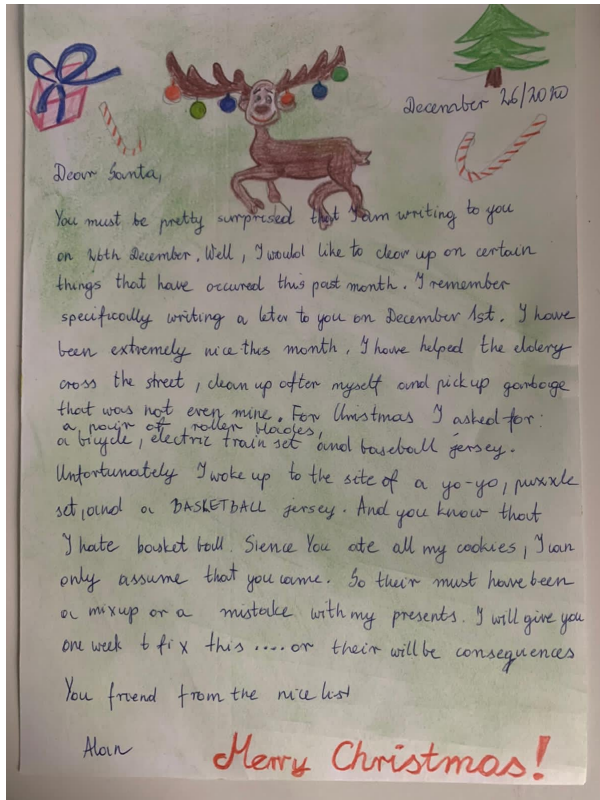 December 26/2020
Dear Santa,
You must be pretty surprised that I am writing to you
on 26th December. Well, I would like to clear up on certain
things that have occured this past month. I remember
specifically writing a leter to you on December 1st. I have
been extremely nice this month. I have helped the eldery
cross the street, clean up after myself and pick up garbage
that was not even mine. For Christmas I asked for:
a pair of roller blades,
a bicycle, electric train set and baseball jersey.
Unfortunately I woke up to the site of a yo-yo, puxxle
set, and a BASKETBALL jersey. And you know that
I hate basket ball. Sience You ate all my cookies, I can
only assume that you came. So their must have been
a mixup or a mistake with my presents. I will give you
one week to fix this .... or their will be consequences
You friend from the nice list
Alan
Merry Christmas!